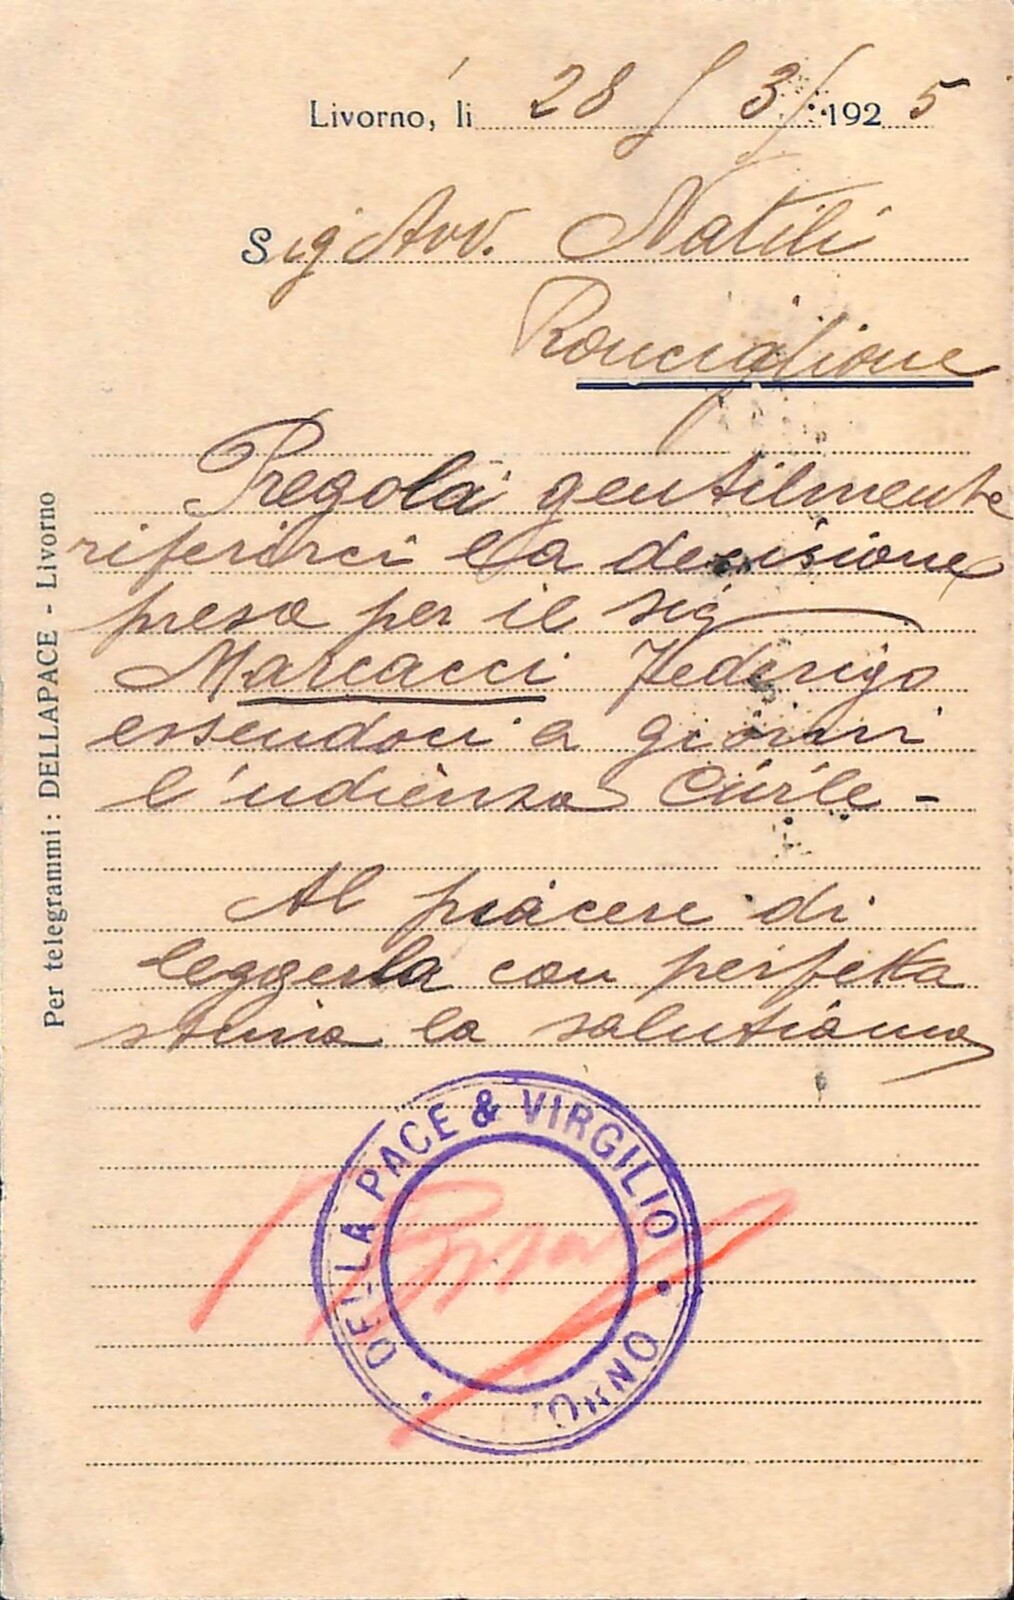 Livorno, li 28/3/1925
Sig Avv. Natili
Ronciglione
Pregola gentilmente
riferirci la decisione
presa per il sig
Marcacci Federigo
essendoci a giorni
l'udienza
Al piacere di
leggerla con perfetta
stima la salutiamo
DELLA PACE & VIRGILIO
Per telegrammi: DELLAPACE - Livorno